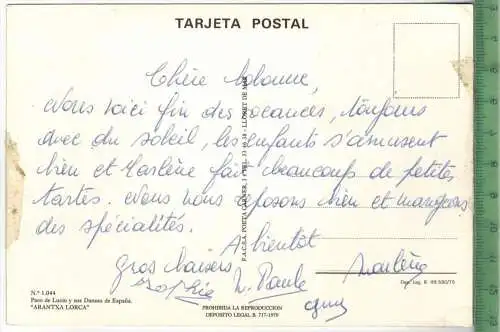 TARJETA POSTAL
Chère
Nous voici fin des vacances, toujours
avec du soleil, les enfants s'amusent
bien et Marlène fait beaucoup de petites
tartes. Nous nous reposons bien et mangeons
des spécialités.
A bientôt
Gros baisers
Sophie M. Paule Marlène
F.A.C.S.A. POETA GALNER, 1 - TEL. LLORET DE MAR
N.º 1.044
Paco de Lucio y sus Danzas de España.
"ARANTXA LORCA"
PROHIBIDA LA REPRODUCCION
DEPOSITO LEGAL B. 717-1970
Dep. Leg. B. 49.590/75